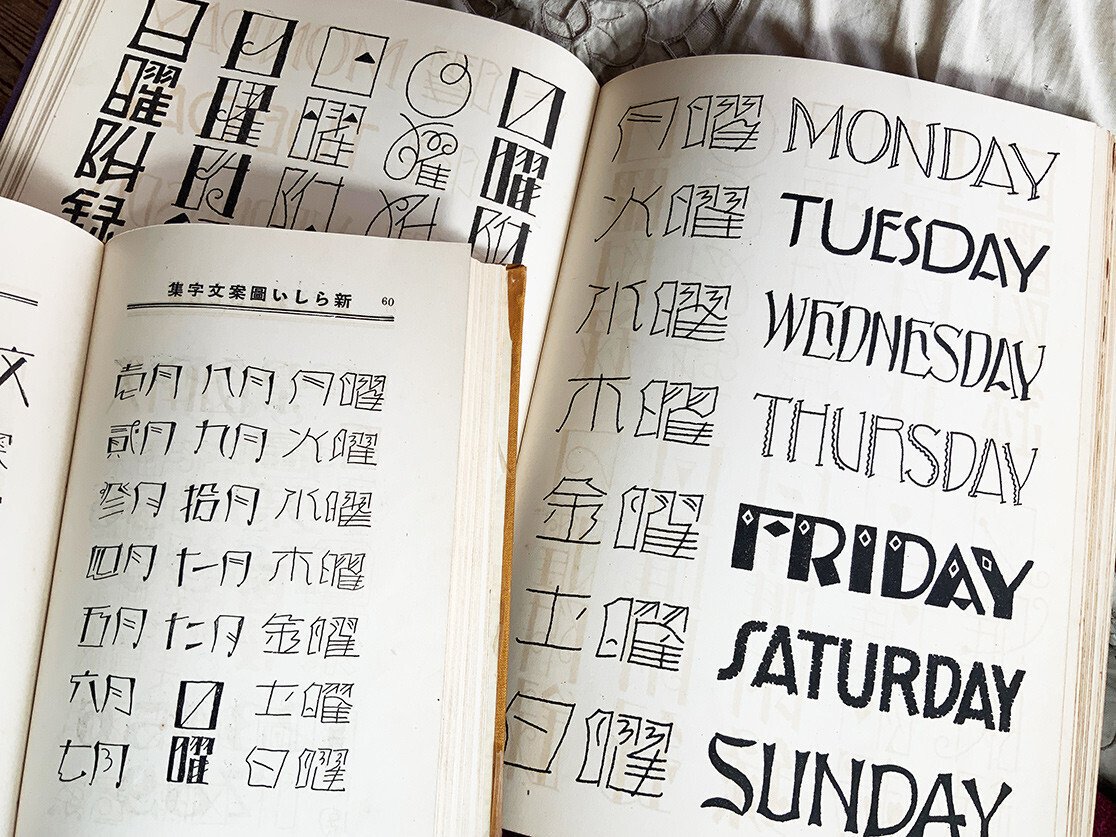 日曜附録
日曜附
日曜附
日曜附
日曜附
月曜 MONDAY
火曜 TUESDAY
水曜 WEDNESDAY
木曜 THURSDAY
金曜 FRIDAY
土曜 SATURDAY
日曜 SUNDAY
新らしい圖案文字集 60
壹月 八月 月曜
貳月 九月 火曜
參月 拾月 水曜
四月 十一月 木曜
五月 十二月 金曜
六月 日 土曜
七月 曜 日曜
文